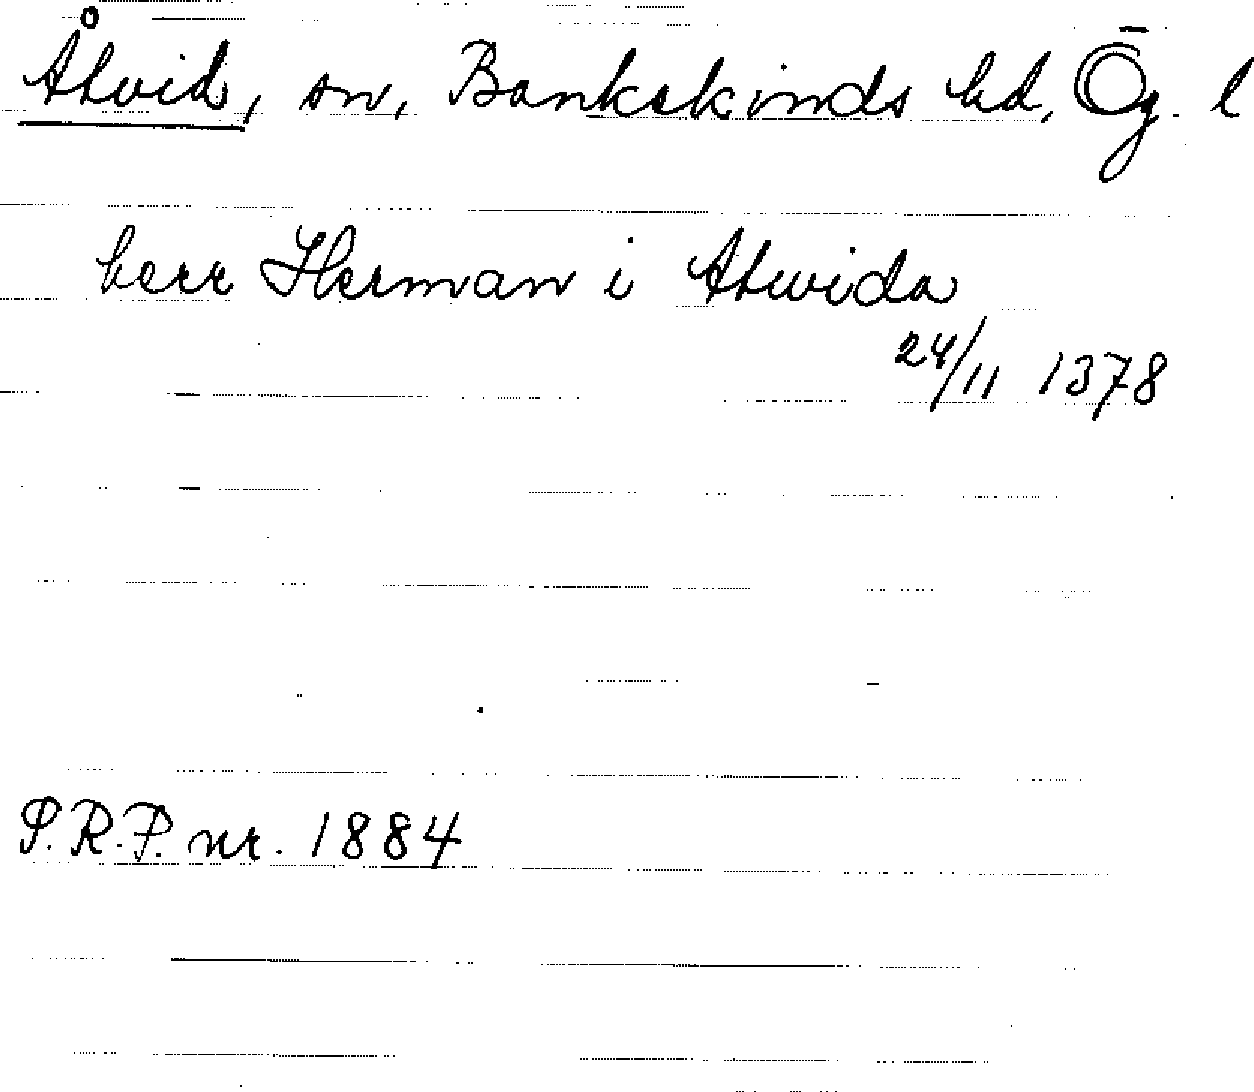 Åtvid, sn, Bankekinds hd, Ög. l
herr Herman i Atwida
24/11 1378
S.R.P. nr. 1884